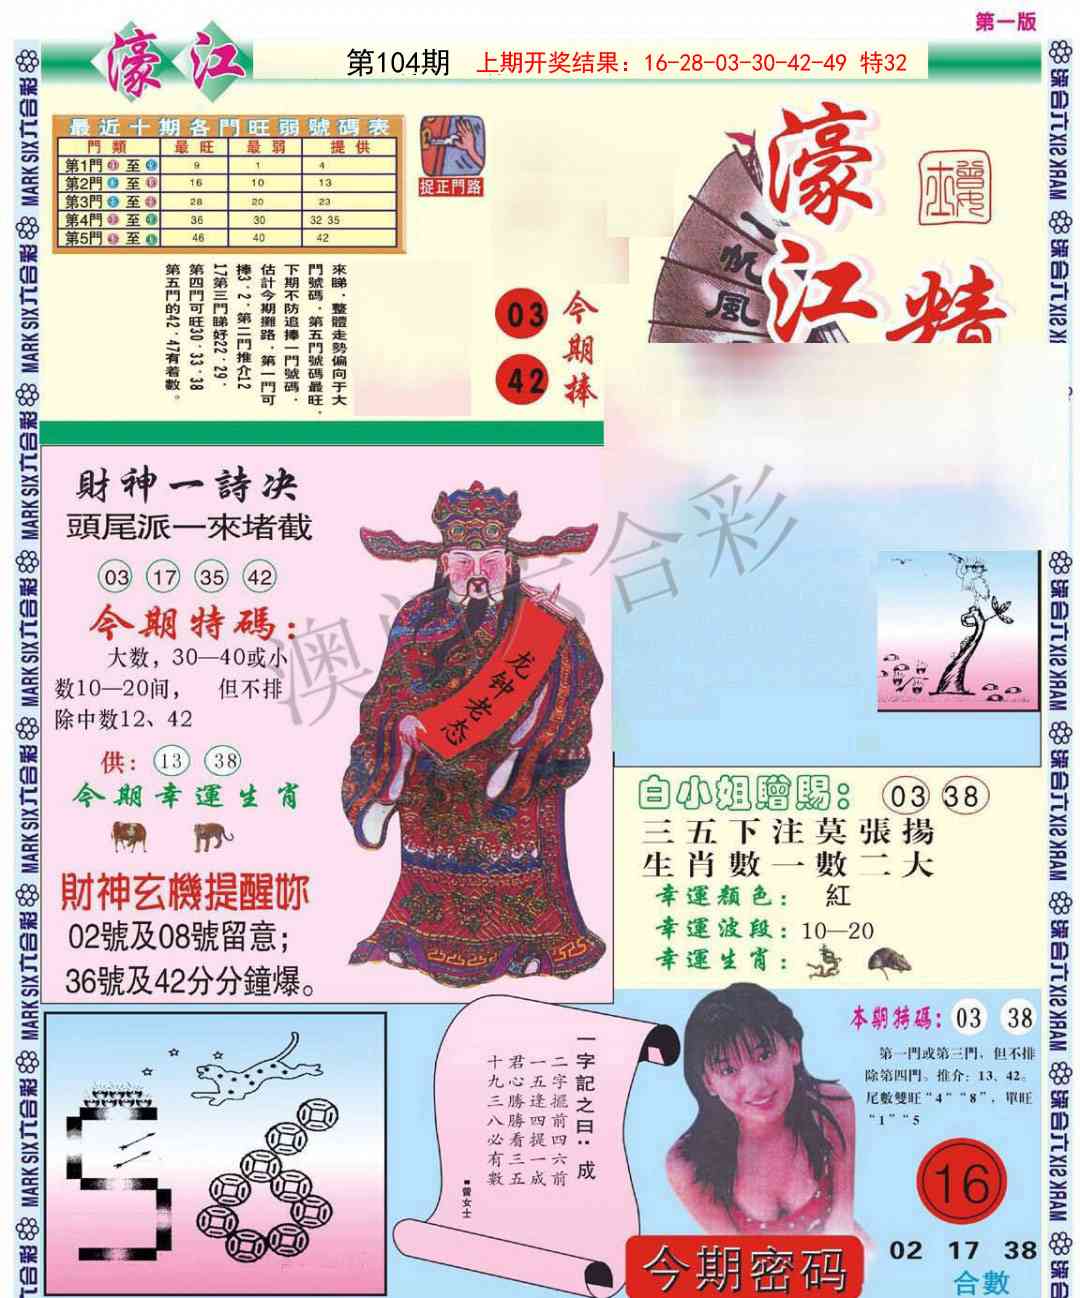 第一版
濠江
第104期 上期开奖结果：16-28-03-30-42-49 特32
最近十期各門旺弱號碼表
門類 最旺 最弱 提供
第1門 至 9 1 4
第2門 至 16 10 13
第3門 至 28 20 23
第4門 至 36 30 32 35
第5門 至 46 40 42
捉正門路
濠江精
一帆風
來睇．整體走勢偏向于大
門號碼．第五門號碼最旺．
下期不防追捧一門號碼．
估計今期攤路．第一門可
捧3．2．第二門推介12
17第三門睇好22．29．
第四門可旺30．33．38
第五門的42．47有着數。
今期捧
03
42
財神一詩决
頭尾派一來堵截
03 17 35 42
今期特碼：
大数，30—40或小
数10—20间， 但不排
除中数12、42
供： 13 38
今期幸運生肖
財神玄機提醒妳
02號及08號留意；
36號及42分分鐘爆。
龙钟老态
白小姐贈賜： 03 38
三五下注莫張揚
生肖數一數二大
幸運顏色： 紅
幸運波段：10—20
幸運生肖：
一字記之曰：成
二字擺前四六前
一五逢四提一成
君心勝勝看三五
十九三八必有數
■曾女士
本期特碼：03 38
第一門或第三門、但不排
除第四門。推介：13、42。
尾數雙旺“4”“8”，單旺
“1”“5
16
今期密码
02 17 38
合數
MARK SIX六合彩
澳门六合彩